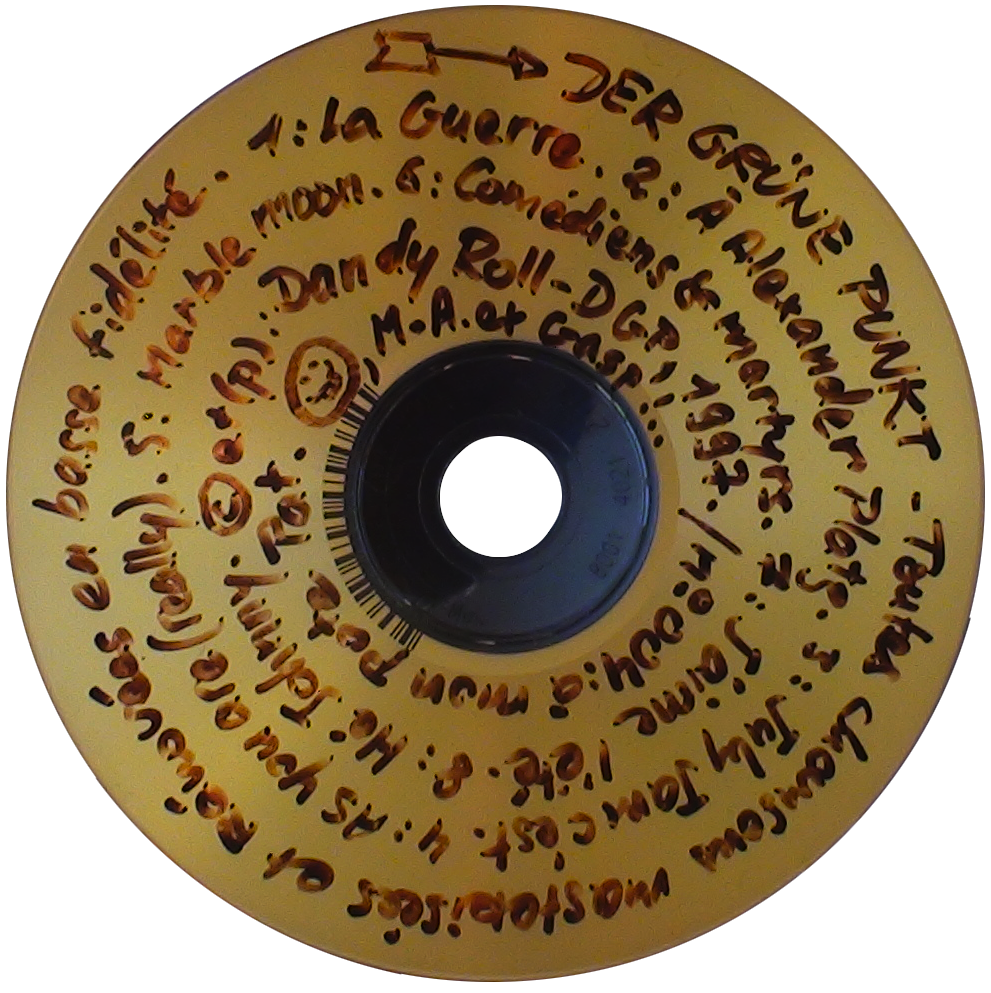 DER GRÜNE PUNKT - Toutes chansons masterisées et Rainurées en basse fidélité.
1: La Guerre. 2: À Alexander Platz. 3: July Jam c'est. 4: As you are (really).
5: Marble moon. 6: Comédiens & martyrs. 7: J'aime l'été. 8: Hé Tchimmy.
© et (p): Dandy Roll-DGP, 1997. /n:0004: à mon et Pat.
, M.A. et Gasp...